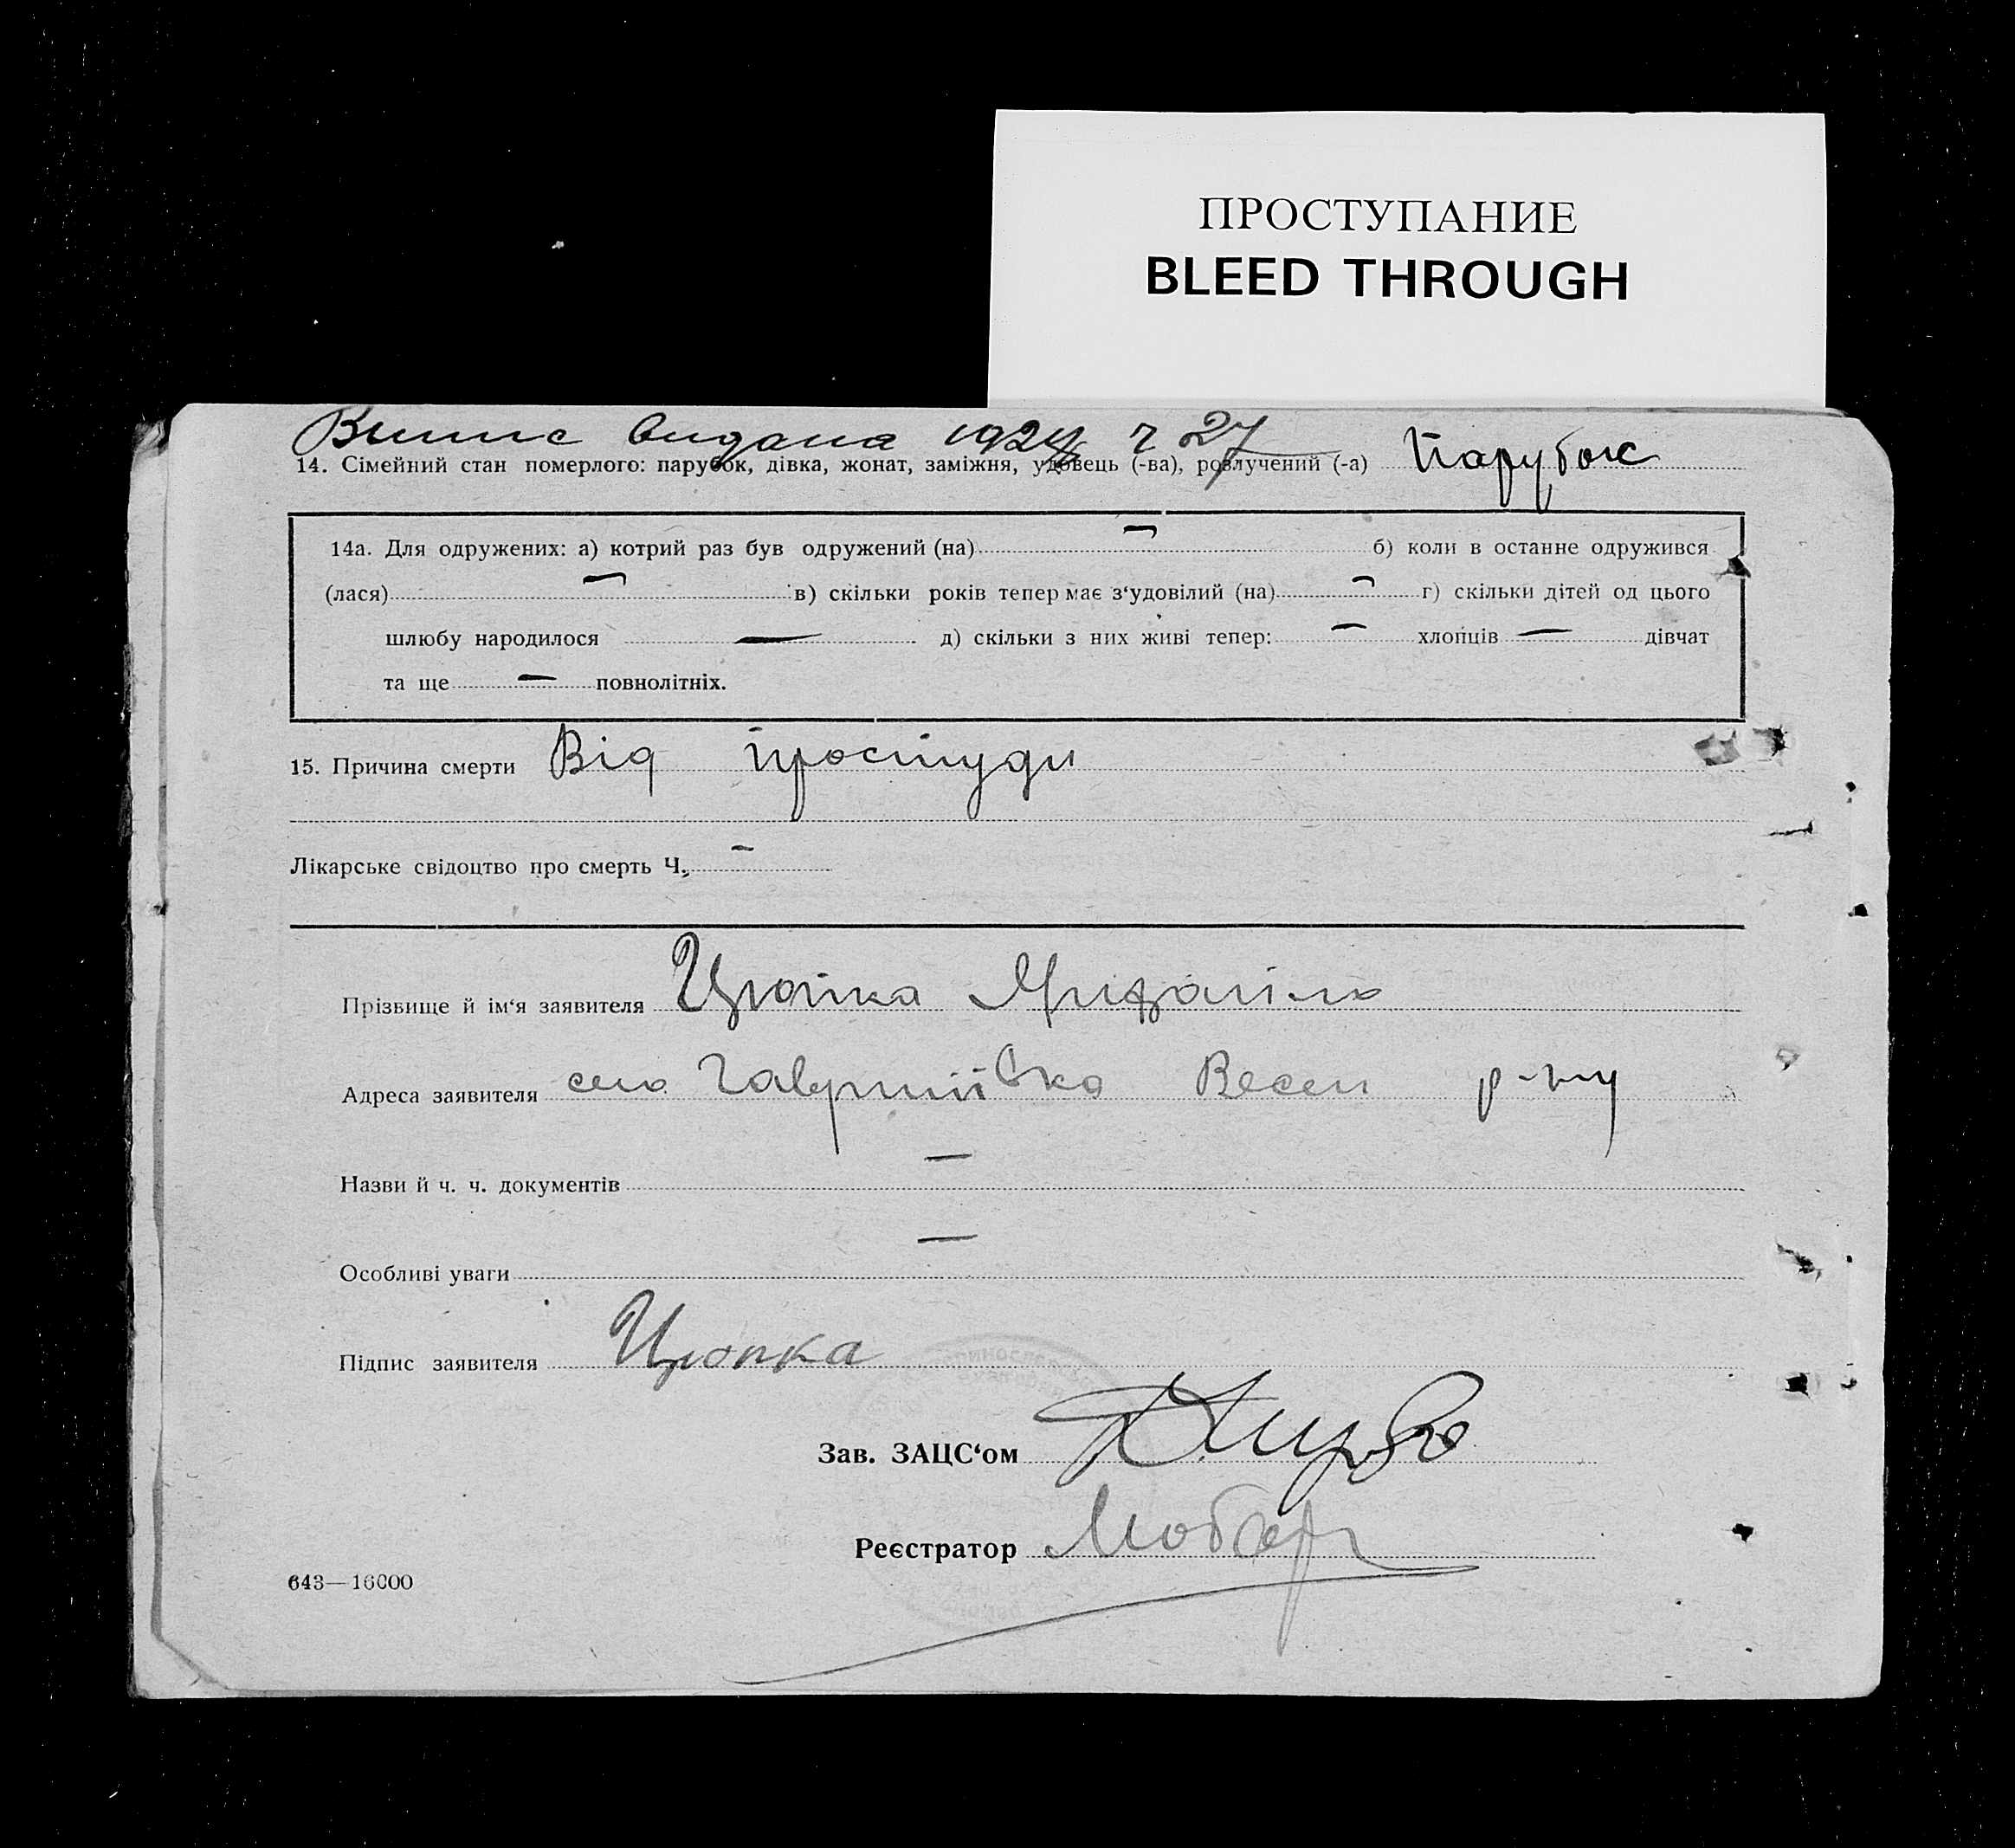 ПРОСТУПАНИЕ
BLEED THROUGH
Випис видана 192 27
14. Сімейний стан померлого: парубок, дівка, жонат, заміжня, удовець (-ва), розлучений (-а) Парубок
14а. Для одружених: а) котрий раз був одружений (на) — б) коли в останнє одружився
(лася) — в) скільки років тепер має з‘удовілий (на) — г) скільки дітей од цього
шлюбу народилося — д) скільки з них живі тепер: — хлопців — дівчат
та ще — повнолітніх.
15. Причина смерти Від простуди
Лікарське свідоцтво про смерть Ч. —
Прізвище й ім‘я заявителя Цюпка Михайло
Адреса заявителя село Гавриіївка Весел р-ну
Назви й ч. ч. документів —
Особливі уваги —
Підпис заявителя Цюпка
Зав. ЗАЦС‘ом
Реєстратор
643—16000